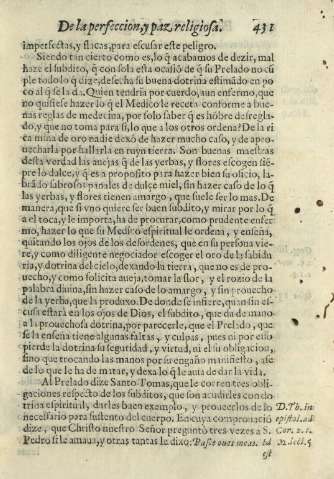 De la perfeccion, y paz religiosa. 431
imperfectas, y flacas, para escusar este peligro.
Siendo tan cierto como es, lo q̃ acabamos de dezir, mal
haze el subdito, q̃ con sola esta ocasiõ de q̃ su Prelado no cũ
ple todo lo q̃ dize, desecha su buena dotrina estimãdo en po
co al q̃ se la da. Quien tendria por cuerdo, aun enfermo, que
no quisiese hazer lo q̃ el Medico le receta conforme a bue
nas reglas de medecina, por solo saber q̃ es hõbre desregla-
do, y que no toma para si, lo que a los otros ordena? De la ri
ca mina de oro nadie dexò de hazer mucho caso, y de apro-
uecharla por hallarla en ruyn tierra. Son buenas maestras
desta verdad las auejas q̃ de las yerbas, y flores escogen siẽ-
pre lo dulce, y q̃ es a proposito para hazer bien su oficio, la-
brãdo sabrosos panales de dulçe miel, sin hazer caso de lo q̃
las yerbas, y flores tienen amargo, que suele ser lo mas. De
manera, que si vno quiere ser buen subdito, y mirar por lo q̃
a el toca, y le importa, ha de procurar, como prudente enfer
mo, hazer lo que su Medico espiritual le ordena, y enseña,
quitando los ojos de los desordenes, que en su persona vie-
re, y como diligente negociador escoger el oro de la sabidu
ria, y dotrina del cielo, dexando la tierra, que no es de pro-
uecho, y como solicita aueja, tomar la flor, y el rozio de la
palabra diuina, sin hazer caso de lo amargo, y sin prouecho
de la yerba, que la produxo. De donde se infiere, quan sin es-
cusa estarà en los ojos de Dios, el subdito, que da de mano
a la prouechosa dotrina, por parecerle, que el Prelado, que
se la enseña tiene algunas faltas, y culpas, pues ni por esso
pierde la dotrina su seguridad, y virtud, ni el su obligacion,
sino que trocando las manos por su engaño manifiesto, ase
de lo que le ha de matar, y dexa lo q̃ le auia de dar la vida.
Al Prelado dize Santo Tomas, que le corren tres obli-
gaciones respecto de los subditos, que son acudirles con do
trina espiritual, darles buen exemplo, y proueerlos de lo
necessario para sustento del cuerpo. En cuya comprouaciõ
dize, que Christo nuestro Señor preguntò tres vezes a S.
Pedro si le amaua, y otras tantas le dixo: Pasce oues meas. Id
est
D. Th. in
epistol. ad
Cor. 2. c.